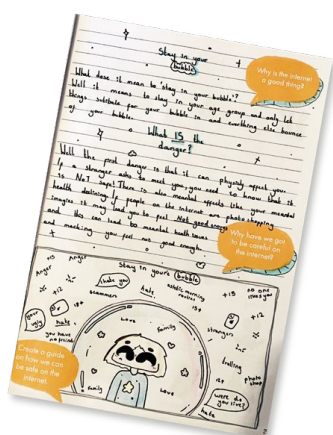 Stay in your
bubble
Why is the internet
a good thing?
What dose it mean to 'stay in your bubble'?
Well it means to stay in your age group and only let
things suitable for your bubble in and everthing else bounce
of your bubble.
What IS the
danger?
Well the prot danger is that it can physicly affect you.
If a stranger asks to meet you, you need to know that it
is NoT safe! There is also mental affects like your meantal
health declining! If people on the internet are photo shopping
imagies it may lead you to feel Not good enough
and this can lead to meantal health issues
and marking you feel not good enough.
Why have we got
to be careful on
the internet?
Stay in your bubble
Anger
+15
Anger
I hate you
scammers
hate
+15
no one
likes you
+12
your
ugly
hate
you have
no friends
Love
Family
strangers
trolling
photo
shop
12+
Family
Love
were do
you live?
hate
Create a guide
on how we can
be safe on the
internet.